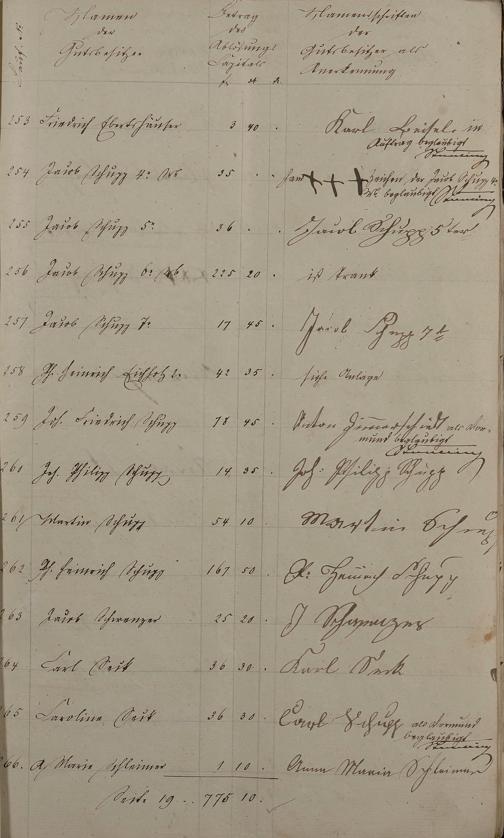 Namen der Gutsbesitzer
Betrag des Ablösungs Capitals
Namensschriften der Gutsbesitzer als Anerkennung
253 Friedrich Ebertshäuser 3 40 . Karl in
Auftrag beglaubigt
254 Jacob Schupp 4r 35 . . Hand +++ Zeichen der Jacob Schupp 4r
Wb beglaubigt
255 Jacob Schupp 5r 36 . Jacob Schupp 5ter
256 Jacob Schupp 6r 225 20 . ist krank
257 Jacob Schupp 7r 17 45 . Jacob Schupp 7t
258 Ph. Heinrich Eichholz 2r 42 35 . siehe Anlage
259 Joh. Friedrich Schupp 78 45 . Anton Zimmerschiedt als Vor-
mund beglaubigt
260 Joh. Philipp Schupp 14 35 . Joh. Philipp Schupp
261 Martin Schupp 54 10 . Martin Schupp
262 Ph. Heinrich Schupp 167 50 . Ph Heinrich Schupp
263 Jacob 25 20 . J
264 Carl Seck 36 30 . Karl Seck
265 Caroline Seck 36 30 . Carl Schupp als Vormund
beglaubigt
266. A Marie Schleimer 1 10 . Anna Maria Schleimer
Seite 19 .. 775 10 .